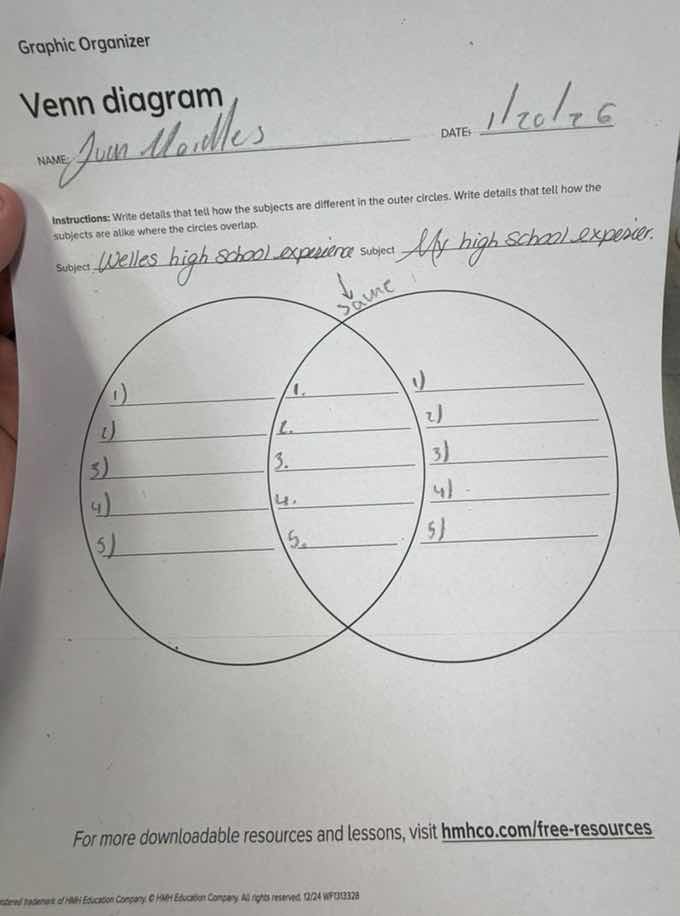 Graphic Organizer
Venn diagram
NAME: Juan
DATE: 1/20/26
Instructions: Write details that tell how the subjects are different in the outer circles. Write details that tell how the
subjects are alike where the circles overlap.
Subject Welles high school experience Subject My high school experier.
↓
same
1) 1. 1)
2) 2. 2)
3) 3. 3)
4) 4. 4)
5) 5. 5)
For more downloadable resources and lessons, visit hmhco.com/free-resources
trademark of HMH Education Company. © HMH Education Company. All rights reserved. 12/24 WF1313328